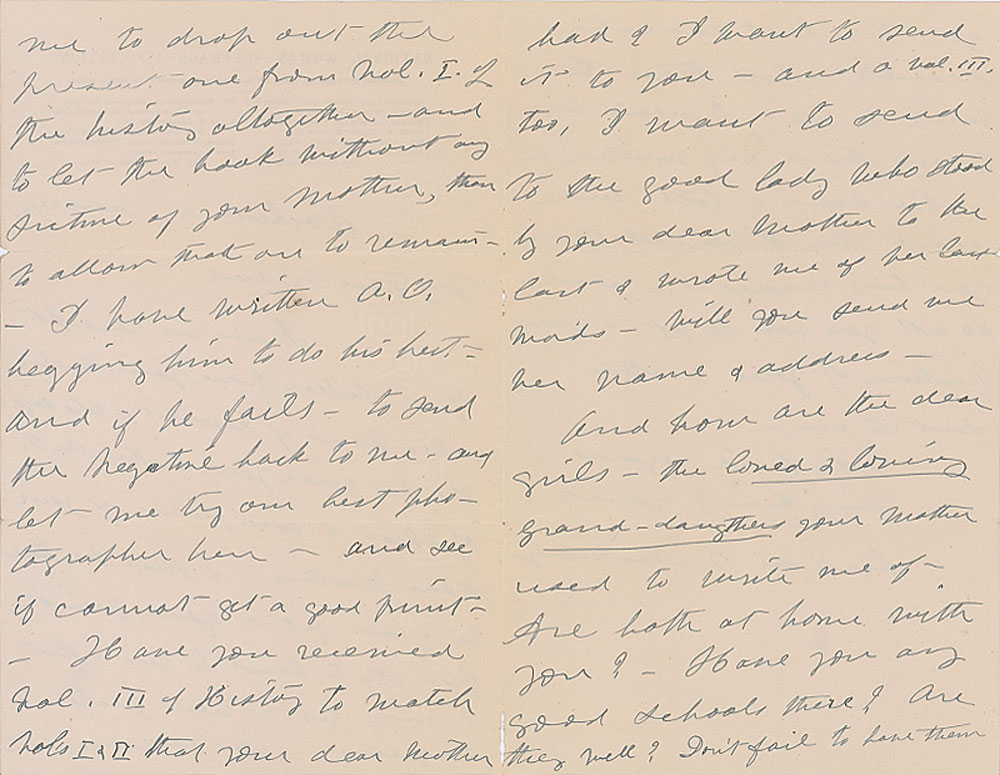 me to drop out the
present one from Vol. I. of
the history altogether – and
to let the book without any
picture of your Mother, than
to allow that one to remain –
– I have written A. O.
begging him to do his best –
and if he fails – to send
the Negative back to me – and
let me try our best pho-
tographer here – and see
if cannot get a good print –
– Have you received
Vol. III of History to match
Vols I & II that your dear Mother
had? I want to send
it to you – and a Vol. III.
too, I want to send
to the good lady who stood
by your dear Mother to the
last & wrote me of her last
words – Will you send me
her name & address –
And how are the dear
girls – the loved & loving
grand-daughters your Mother
used to write me of –
Are both at home with
you? – Have you any
good schools there? Are
they well? Don't fail to have them